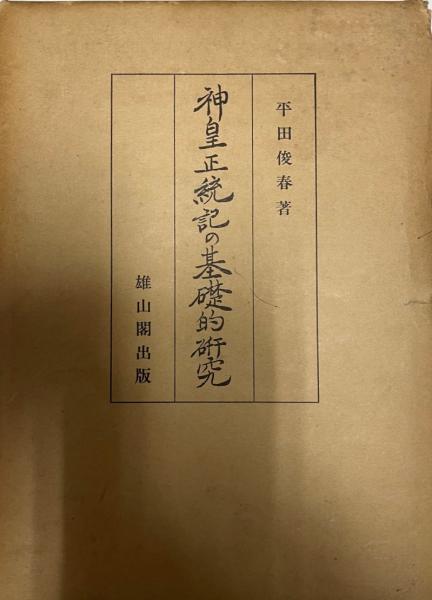 平田俊春著
神皇正統記の基礎的研究
雄山閣出版